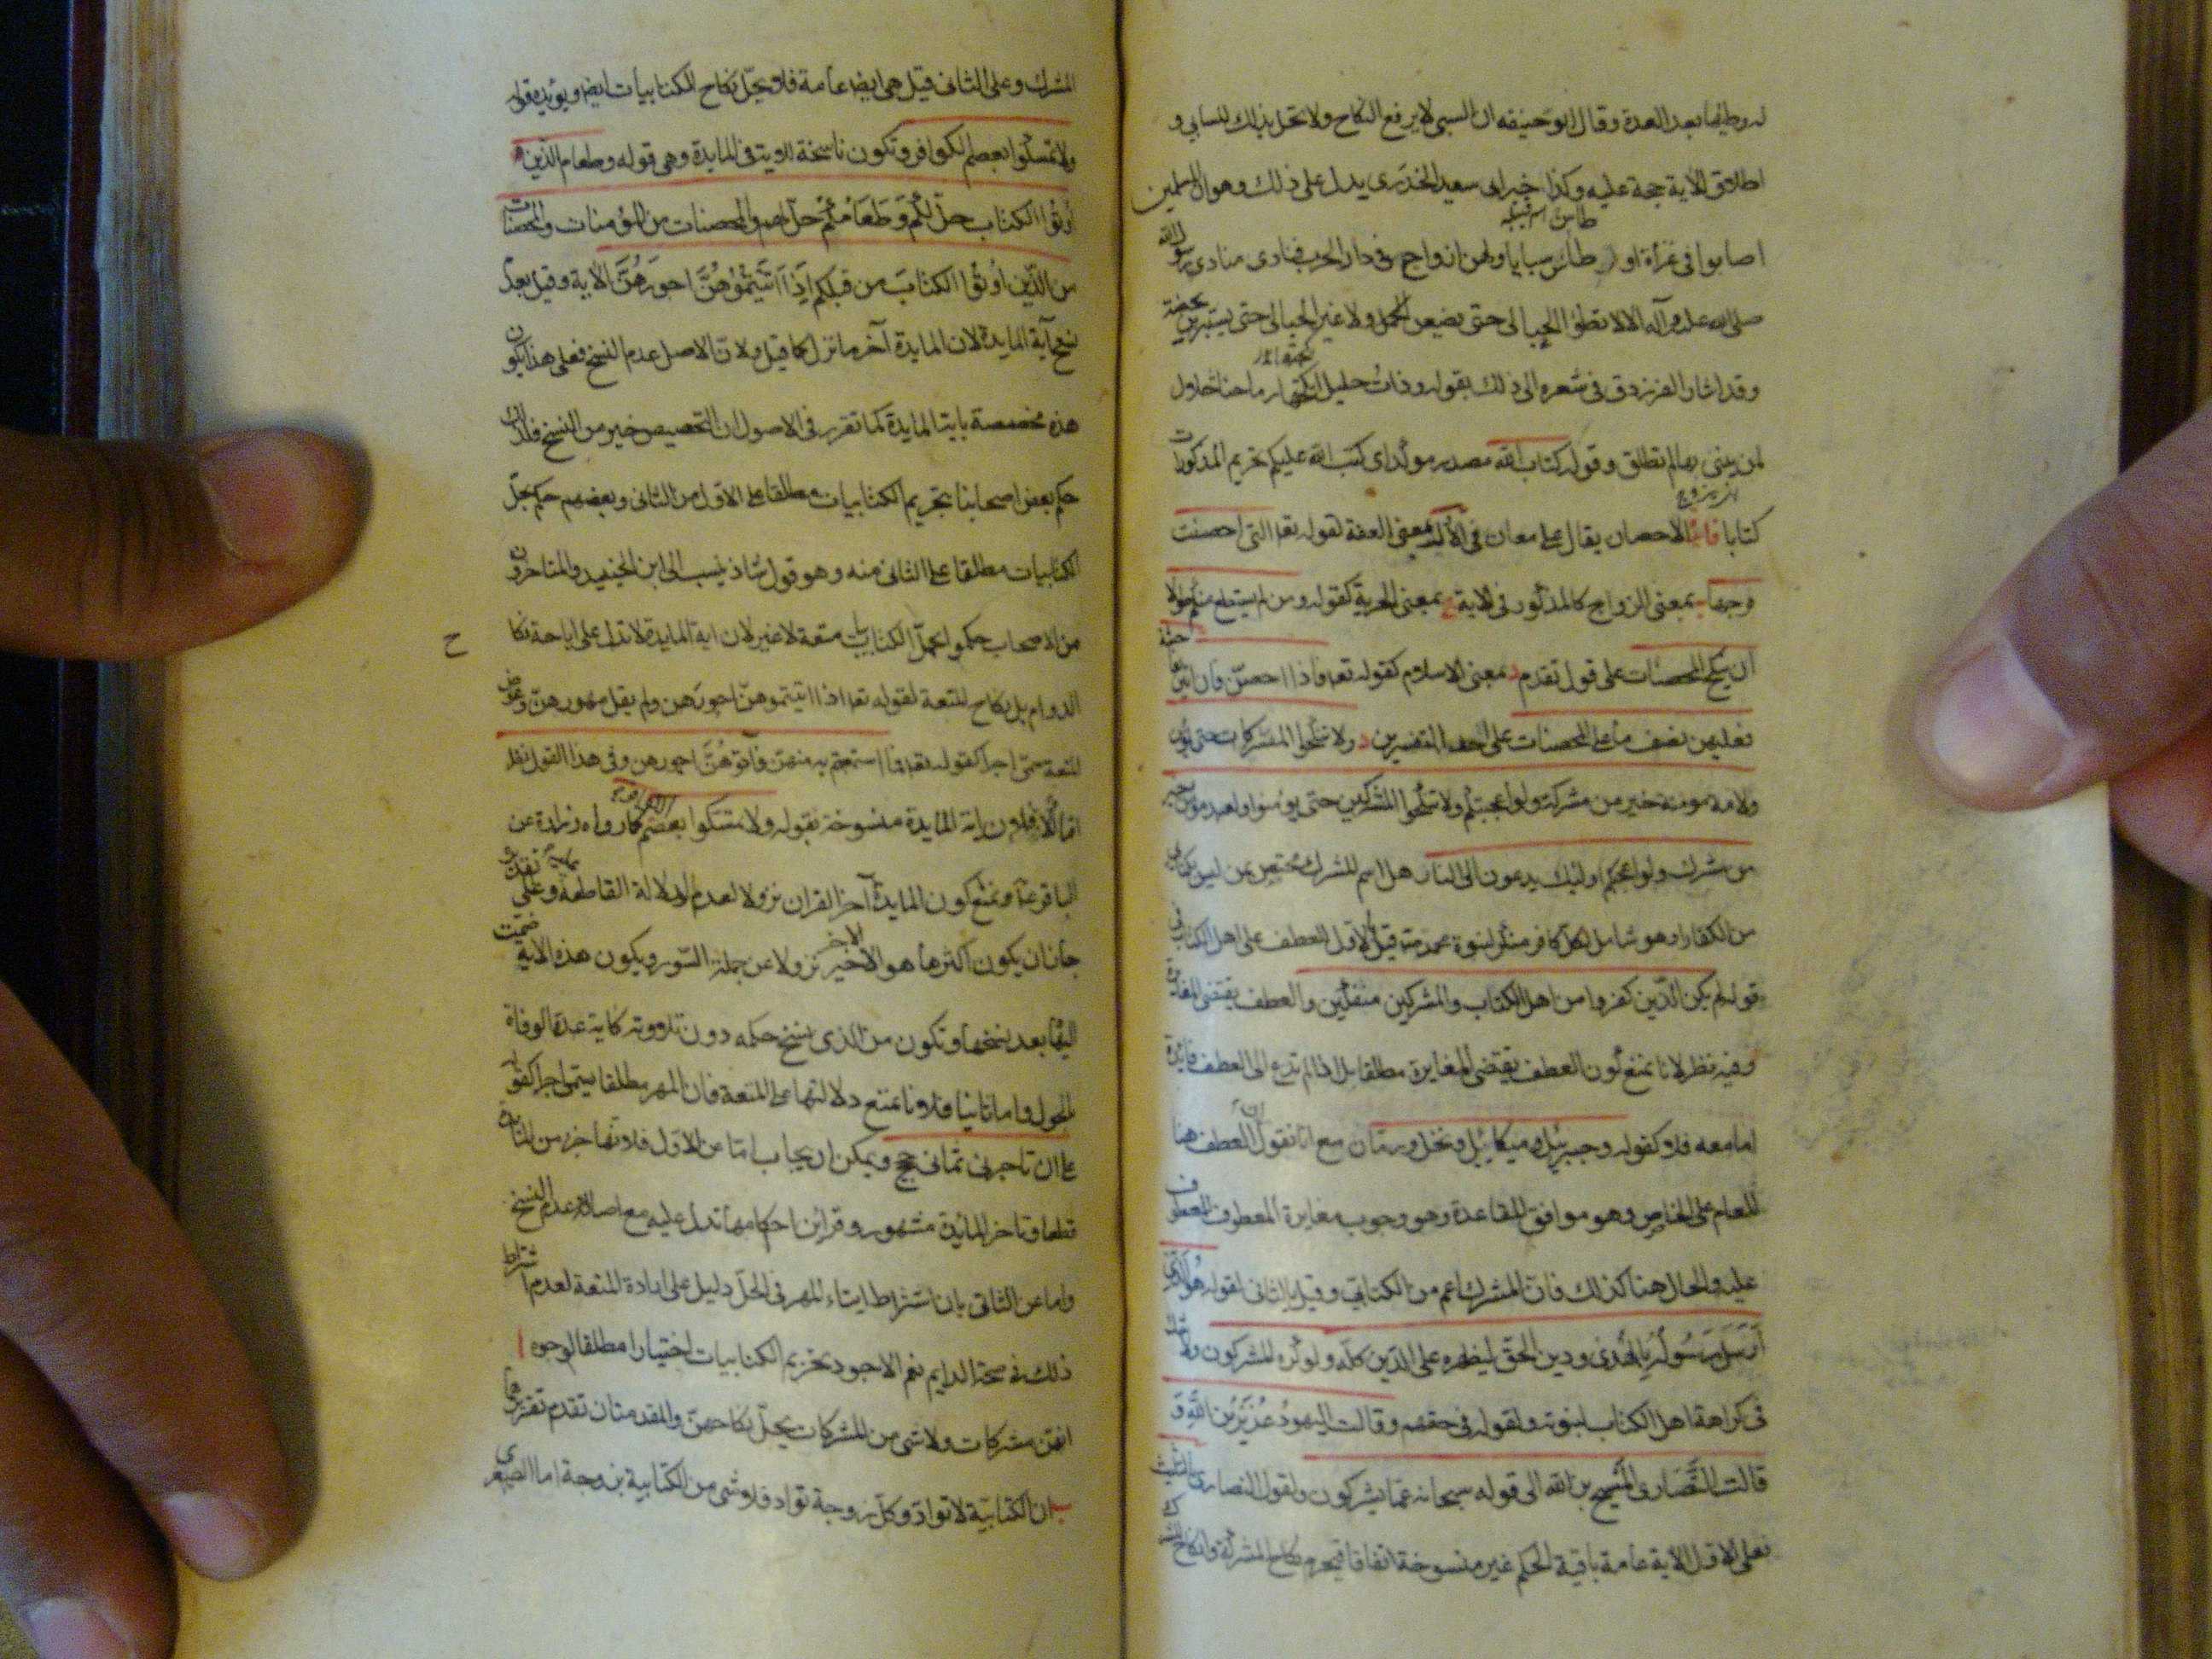 له وطئها بعد العدة وقال ابو حنيفه ان السبى لا يرفع النكاح ولا تحل بذلك للسابي و
اطلاق الاية حجة عليه وكذا خبر ابى سعيد الخدرى يدل على ذلك وهو ان المسلمين
اصابوا فى غزاة اوطاس سبايا ولهن ازواج فى دار الحرب فنادى منادى رسول الله
صلى الله عليه وآله الا لا توطؤا الحبالى حتى يضعن الحمل ولا غير الحبالى حتى يستبرين بحيضة
وقد اشار الفرزدق فى شعره الى ذلك بقوله وذات حليل انكحتها رماحنا حلال
لمن يبنى بها لم تطلق وقوله كتاب الله مصدر مولد اى كتب الله عليكم تحريم المذكورات
كتابا الاحصان يقال على معان بمعنى العفة لقوله تعا التى احصنت
فرجها بمعنى الزواج كالمذكور فى الاية بمعنى الحرية كقوله ومن لم يستطع منكم طولا
ان ينكح المحصنات على قول تقدم د بمعنى الاسلام كقوله تعا فاذا احصن فان اتين بفاحشة
فعليهن نصف ما على المحصنات على احد التفسيرين ولا تنكحوا المشركات حتى يؤمن
ولامة مومنة خير من مشركة ولو اعجبتكم ولا تنكحوا المشركين حتى يؤمنوا ولعبد مؤمن خير
من مشرك ولو اعجبكم اولئك يدعون الى النار هل اسم المشرك مختص بمن ليس بكتابى
من الكفار او هو شامل لكل كافر منكر لنبوة محمد قيل الاول للعطف على اهل الكتاب فى
قوله لم يكن الذين كفروا من اهل الكتاب والمشركين منفكين والعطف يقتضى المغايرة
وفيه نظر لانا نمنع كون العطف يقتضى المغايرة مطلقا بل اذا لم تدع الى العطف فائدة
اما معه فلا كقوله وجبرئيل وميكائيل ونخل ورمان مع انا نقول ان العطف هنا
للعام على الخاص وهو موافق للقاعدة وهو وجوب مغايرة المعطوف للمعطوف
عليه والحال هنا كذلك فان المشرك اعم من الكتابى وقيل بالثانى لقوله هو الذى
ارسل رسوله بالهدى ودين الحق ليظهره على الدين كله ولو كره المشركون ولا شك
فى كراهة اهل الكتاب لنبوته ولقوله فى حقهم وقالت اليهود عزير بن الله و
قالت النصارى المسيح بن الله الى قوله سبحانه عما يشركون ولقول النصارى بالتثليث
فعلى الاول الاية عامة باقية الحكم غير منسوخة اتفاقا فيحرم نكاح المشركة وانكاح المشرك
المشرك وعلى الثانى قيل هى ايضا عامة فلا يحل نكاح الكتابيات ايضا ويؤيده قوله
ولا تمسكوا بعصم الكوافر وتكون ناسخة للاية فى المايدة وهى قوله وطعام الذين
اوتوا الكتاب حل لكم وطعامكم حل لهم والمحصنات من المؤمنات والمحصنات
من الذين اوتوا الكتاب من قبلكم اذا آتيتموهن اجورهن الآية وقيل بعدم
نسخ آية المايدة لان المايدة آخر ما نزل كما قيل ولان الاصل عدم النسخ فعلى هذا يكون
هذه مخصصة باية المايدة كما تقرر فى الاصول ان التخصيص خير من النسخ فلذلك
حكم بعض اصحابنا بتحريم الكتابيات مطلقا على الاول من الثانى وبعضهم حكم بحل
الكتابيات مطلقا على الثانى منه وهو قول شاذ ينسب الى ابن الجنيد والمتاخرون
من الاصحاب حكموا بحل الكتابيات متعة لا غير لان اية المايدة لا تدل على اباحة نكاح
الدوام بل نكاح المتعة لقوله تعا اذا اتيتموهن اجورهن ولم يقل مهورهن وعوض
المتعة سمى اجرا كقوله تعا فما استمتعتم به منهن فآتوهن اجورهن وفى هذا القول نظر
اما اولا فلان اية المايدة منسوخة بقوله ولا تمسكوا بعصم الكوافر كما رواه زرارة عن
الباقر ع ونمنع كون المايدة آخر القران نزولا لعدم الدلالة القاطعة وعلى تقدير تمامه
جاز ان يكون اكثرها هو الاخير نزولا عن جملة السور ويكون هذه الاية ضمت
اليها بعد نسخها وتكون من الذى نسخ حكمه دون تلاوته كاية عدة الوفاة
بالحول واما ثانيا فلانا نمنع دلالتها على المتعة فان المهر مطلقا يسمى اجرا كقوله
على ان تاجرنى ثمانى حجج ويمكن ان يجاب اما عن الاول فلانها خبر من المتاخرة
قطعا وتاخر المائدة مشهور وقراين احكامها تدل عليه مع اصالة عدم النسخ
واما عن الثانى بان اشتراط ايتاء المهر فى الحل دليل على ارادة المتعة لعدم اشتراط
ذلك فى صحة الدايم نعم الاجود تحريم الكتابيات اختيارا مطلقا لوجوه ا
انهن مشركات ولا شى من المشركات يحل نكاحهن والمقدمتان تقدم تقريرهما
ب ان الكتابية لا تواد وكل زوجة تواد فلا شى من الكتابية بزوجة اما الصغرى